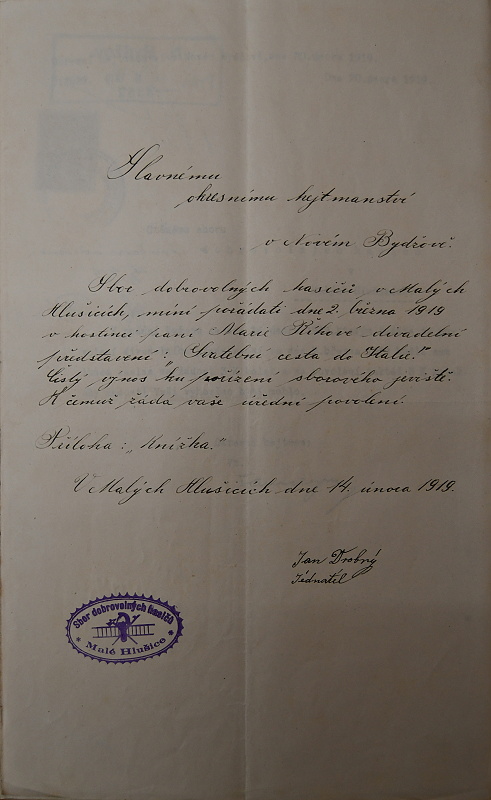 Slavnému
okresnímu hejtmanství
v Novém Bydžově.
Sbor dobrovolných hasičů v Malých
Hlušicích, míní pořádati dne 2. března 1919
v hostinci paní Marie Říhové divadelní
představení: „Svatební cesta do Italie."
Čistý výnos ku pořízení sborového jeviště.
K čemuž žádá vaše úřední povolení.
Příloha: „Knížka."
V Malých Hlušicích dne 14. února 1919.
Jan Drobný
Jednatel
Sbor dobrovolných hasičů
* Malé Hlušice *